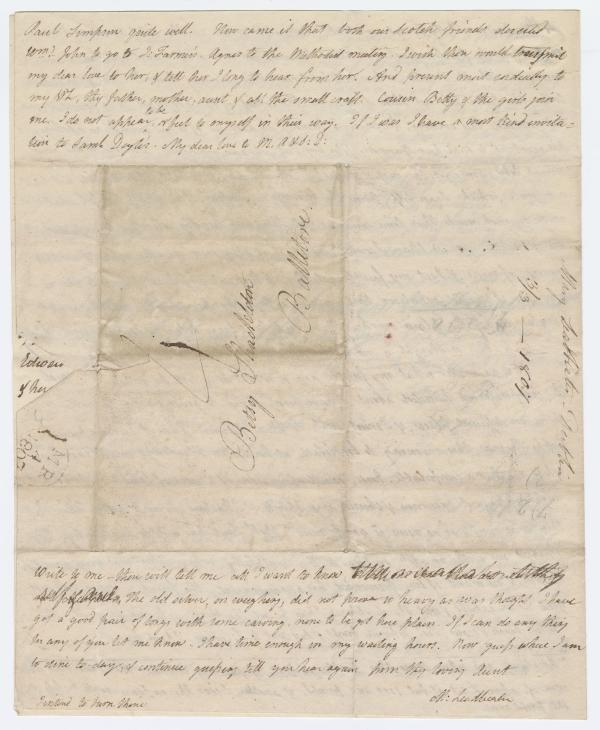 Paul Simpson quite well. How came it that both our Scotch friends deceived
John to go to Is: Farmers. Agnes to the Methodist meeting. I wish thou would transmit
my dear love to her, & tell her I long to hear from her. And present most cordially to
my thy father, mother, aunt & all the small craft. Cousin Betty & the girls join
me. I do not appear to be, & feel to myself in their way. If I was I have a most kind invita=
tion to Sarah Doyle's. My dear love to M. A & S: D:
Betsy Shackleton
Ballitore.
Mary Leadbeater - Dublin
3/3 — 1807
Edwar
of her
1807
Write to me - thou will tell me all I want to know
The old silver, on weighing, did not prove so heavy as was thought. I have
got a good pair of tongs with some carving, none to be got here plain. If I can do any thing
for any of you let me know. I have time enough in my waiting hours. Now guess where I am
to dine to day, & continue guessing till you hear again from thy loving Aunt
M: Leadbeater
I intend to turn thone